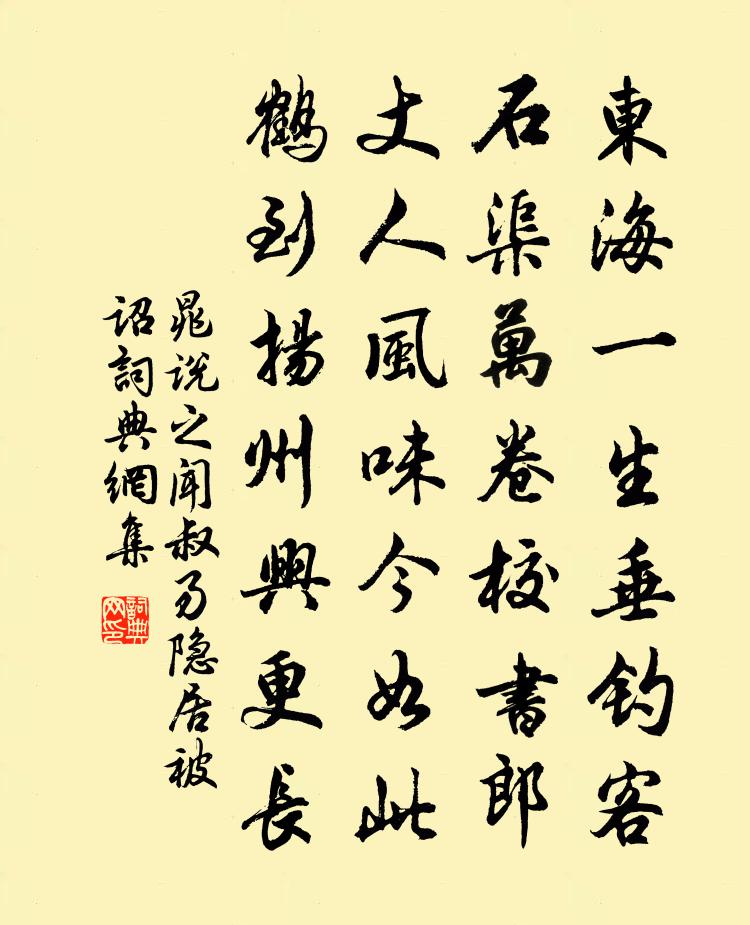 東海一生垂钓客
石渠萬卷校書郎
丈人風味今如此
鶴到揚州興更長
晁说之闻叔易隐居被
诏詞典網集
詞典
网印